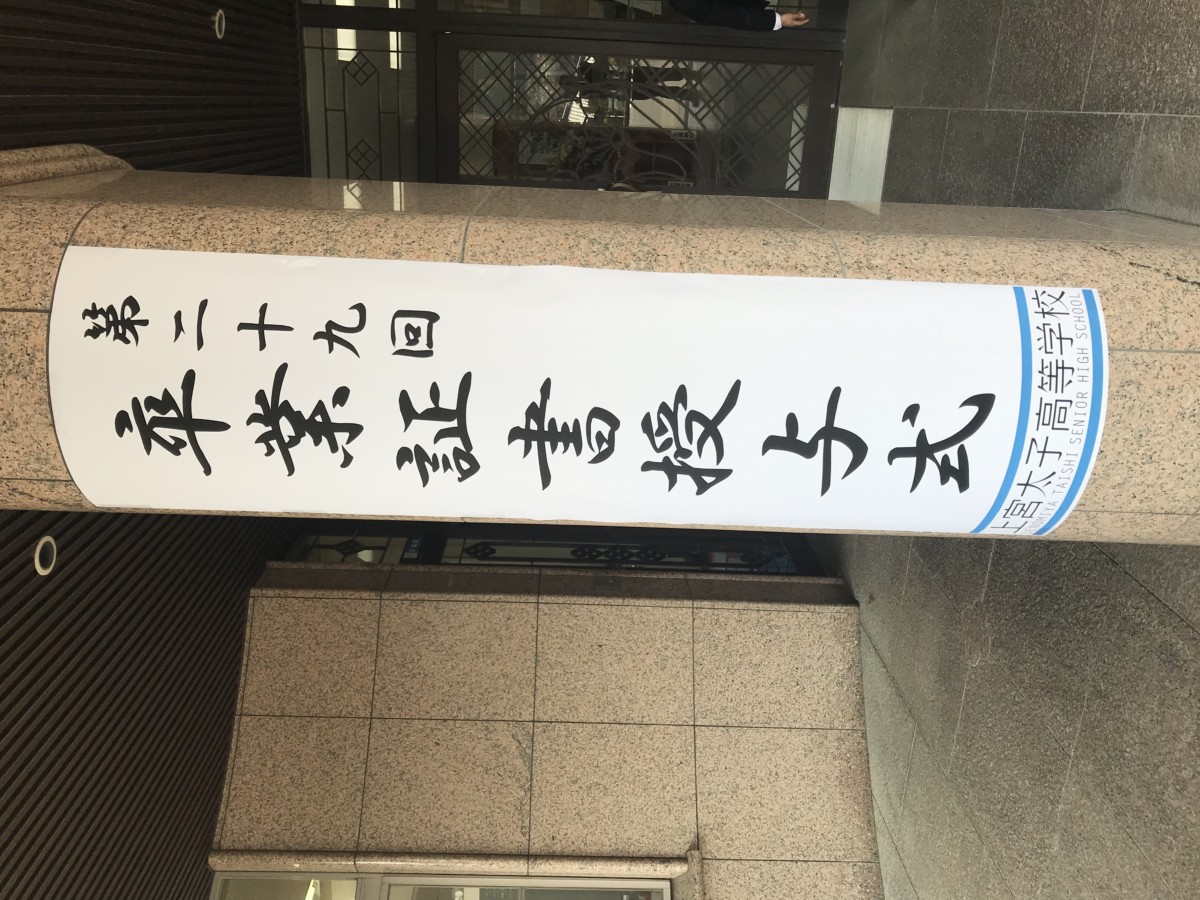 第二十九回
卒業証書授与式
上宮太子高等学校
UENOMIYA TAISHI SENIOR HIGH SCHOOL